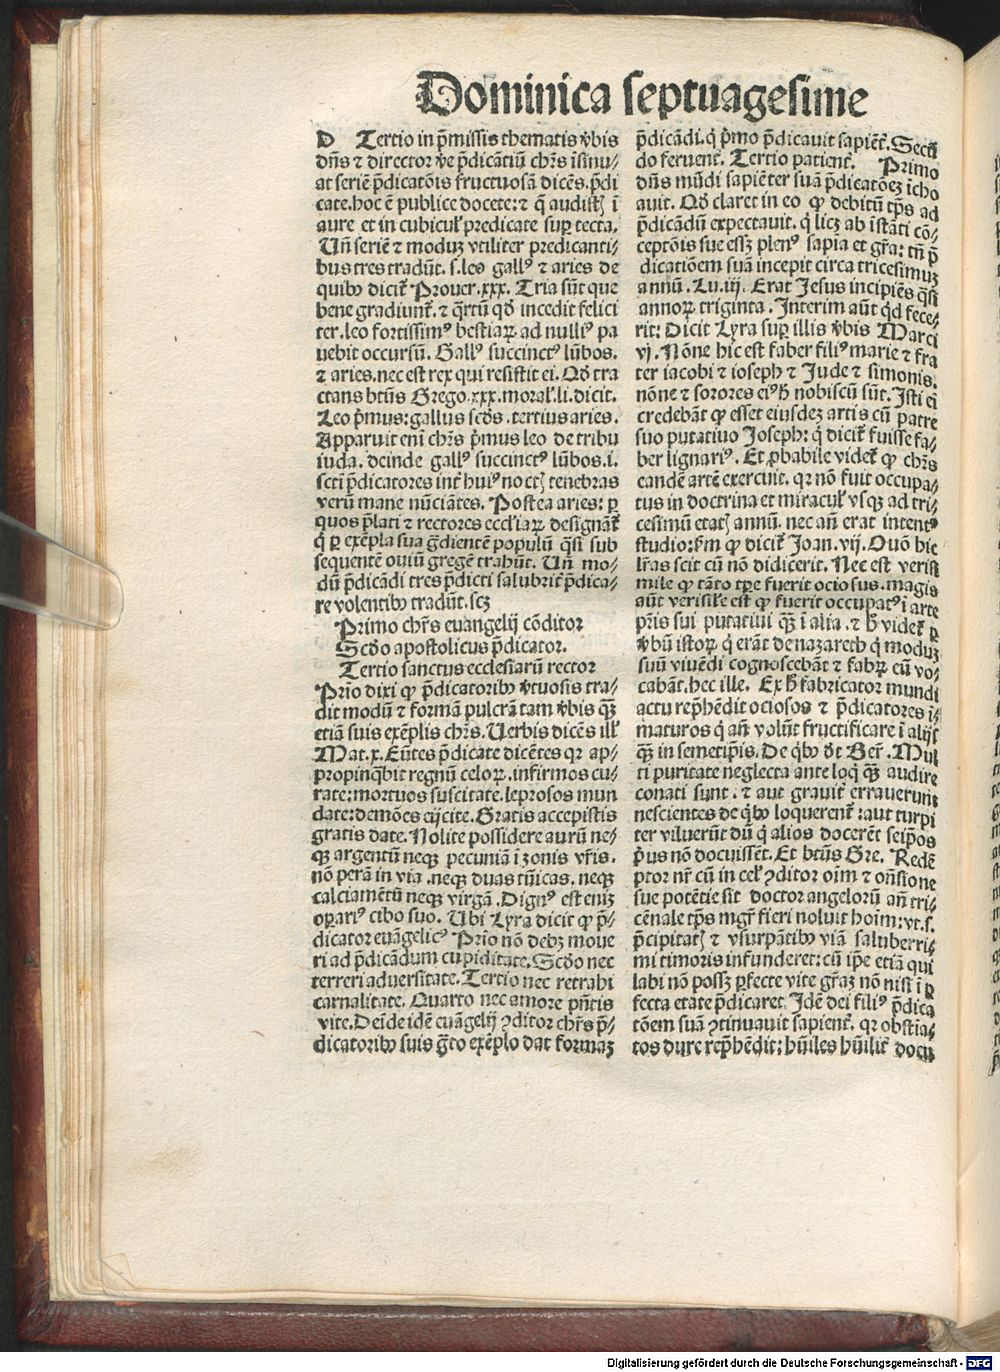 Dominica septuagesime
D Tertio in p̄missis thematis v̄bis
dn̄s ⁊ director v̄e p̄dicātiū chr̄s īsinu⸗
at seriē p̄dicatōis fructuosā dicēs. p̄di
cate. hoc ē publice docete: ⁊ q̄ audistꝭ ī
aure et in cubicul̓ predicate suꝑ tecta.
Un̄ seriē ⁊ moduꝫ vtiliter predicanti⸗
bus tres tradūt. s. leo gallꝰ ⁊ aries de
quibꝰ dicit̄ Prouer. xxx. Tria sūt que
bene gradiunt̄. ⁊ q̄rtū qd̄ incedit felici
ter. leo fortissimꝰ bestiaꝝ ad nulliꝰ pa
uebit occursū. Gallꝰ succinctꝰ lūbos.
⁊ aries. nec est rex qui resistit ei. Qd̄ tra
ctans btūs Grego. xxx. moral̓. li. dicit.
Leo p̄mus: gallus scd̄s. tertius aries.
Apparuit eni̅ chr̄s p̄mus leo de tribu
iuda. deinde gallꝰ succinctꝰ lūbos. i.
scti p̄dicatores int̄ huiꝰ noctꝭ tenebras
verū mane nūciātes. Postea aries: ꝑ
quos p̄lati ⁊ rectores eccl̓iaꝝ designāt̄
q̄ ꝑ exēpla sua g̅dientē populū q̄si sub
sequentē ouiū gregē trahūt. Un̄ mo⸗
dū p̄dicādi tres p̄dicti salubrit̄ p̄dica⸗
re volentibꝰ tradūt. scꝫ
Primo chr̄s euangelij cōditor
Scd̄o apostolicus p̄dicator.
Tertio sanctus ecclesiarū rector
Prīo dixi ꝙ p̄dicatoribꝰ v̄tuosis tra⸗
dit modū ⁊ formā pulcrā tam v̄bis qꝫ̄
etiā suis exēplis chr̄s. Uerbis dicēs ill̓
Mat. x. Eūtes p̄dicate dicētes qꝛ ap⸗
propinq̄bit regnū celoꝝ. infirmos cu⸗
rate: mortuos suscitate. leprosos mun
date: demōes eijcite. Gratis accepistis
gratis date. Nolite possidere aurū ne⸗
qꝫ argentū neqꝫ pecuniā ī zonis vr̄is.
nō perā in via. neqꝫ duas tūicas. neqꝫ
calciamētū neqꝫ virgā. Dignꝰ est eniꝫ
oꝑariꝰ cibo suo. Ubi Lyra dicit ꝙ p̄⸗
dicator euāgelicꝰ Prīo nō debꝫ moue
ri ad p̄dicādum cupiditate. Scd̄o nec
terreri aduersitate. Tertio nec retrahi
carnalitate. Quarto nec amore pn̄tis
vite. Deīde idē euāgelij ꝯditor chr̄s p̄⸗
dicatoribꝰ suis g̅to exēplo dat formaꝫ
p̄dicādi. q̄ p̄mo p̄dicauit sapiēt̄. Secū
do feruent̄. Tertio patient̄. Primo
dn̄s mūdi sapiēter suā p̄dicatōeꝫ īcho
auit. Qd̄ claret in eo ꝙ debitū tp̄s ad
p̄dicādū expectauit. q̄ licꝫ ab īstāti cō⸗
ceptōis sue essꝫ plenꝰ sapīa et gr̄a: tn̄ p̄
dicatiōem suā incepit circa tricesimuꝫ
annū. Lu. iij. Erat Jesus incipiēs q̄si
annoꝝ triginta. Interim aūt qd̄ fece⸗
rit: Dicit Lyra suꝑ illis v̄bis Marci
vj. Nōne hic est faber filiꝰ marie ⁊ fra
ter iacobi ⁊ ioseph ⁊ Jude ⁊ simonis.
nōne ⁊ sorores eiꝰ h̄ nobiscū sūt. Isti ei̅
credebāt ꝙ esset eiusdeꝫ artis cū patre
suo putatiuo Joseph: q̄ dicit̄ fuisse fa⸗
ber lignariꝰ. Et ꝓbabile videt̄ ꝙ chr̄s
eandē artē exercuit. qꝛ nō fuit occupa⸗
tus in doctrina et miracul̓ vsqꝫ ad tri⸗
cesimū etatꝭ annū. nec añ erat intentꝰ
studio: s̄m ꝙ dicit̄ Joan. vij. Quō hic
lr̄as scit cū nō didicerit. Nec est verisi
mile ꝙ tāto tp̄e fuerit ociosus. magis
aūt verisil̓e est ꝙ fuerit occupatꝰ ī arte
pr̄is sui putatiui qꝫ̄ ī alia. ⁊ h̄ videt̄ ꝑ
v̄bū istoꝝ. q̄ erāt de nazareth q̄ moduꝫ
suū viuēdi cognoscebāt ⁊ fabꝝ cū vo⸗
cabāt. hec ille. Ex h̄ fabricator mundi
actu rep̄hēdit ociosos ⁊ p̄dicatores ī⸗
maturos q̄ añ volūt fructificare ī alijs
qꝫ̄ in semetip̄is. De qb̄ꝰ d̄t Ber̄. Mul
ti puritate neglecta ante loq̄ qꝫ̄ audire
conati sunt. ⁊ aut grauit̄ errauerunt
nescientes de qb̄ꝰ loquerent̄: aut turpi
ter viluerūt dū q̄ alios docerēt seip̄os
p̄us nō docuissēt. Et btūs Gre. Redē
ptor nr̄ cū in cel̓ ꝯditor oīm ⁊ on̄sione
sue potētie sit doctor angelorū añ tri⸗
cēnale tp̄s mgr̄ fieri noluit hoīm: vt. s.
p̄cipitatꝭ ⁊ vsurpātibꝰ viā saluberri⸗
mi timoris infunderet: cū ip̄e etiā qui
labi nō possꝫ ꝑfecte vite gr̄aꝫ nō nisi ī ꝑ
fecta etate p̄dicaret. Idē dei filiꝰ p̄dica
tōem suā ꝯtinuauit sapient̄. qꝛ obstīa⸗
tos dure rep̄hēdit: hūiles hūilit̄ docu
Digitalisierung gefördert durch die Deutsche Forschungsgemeinschaft - DFG